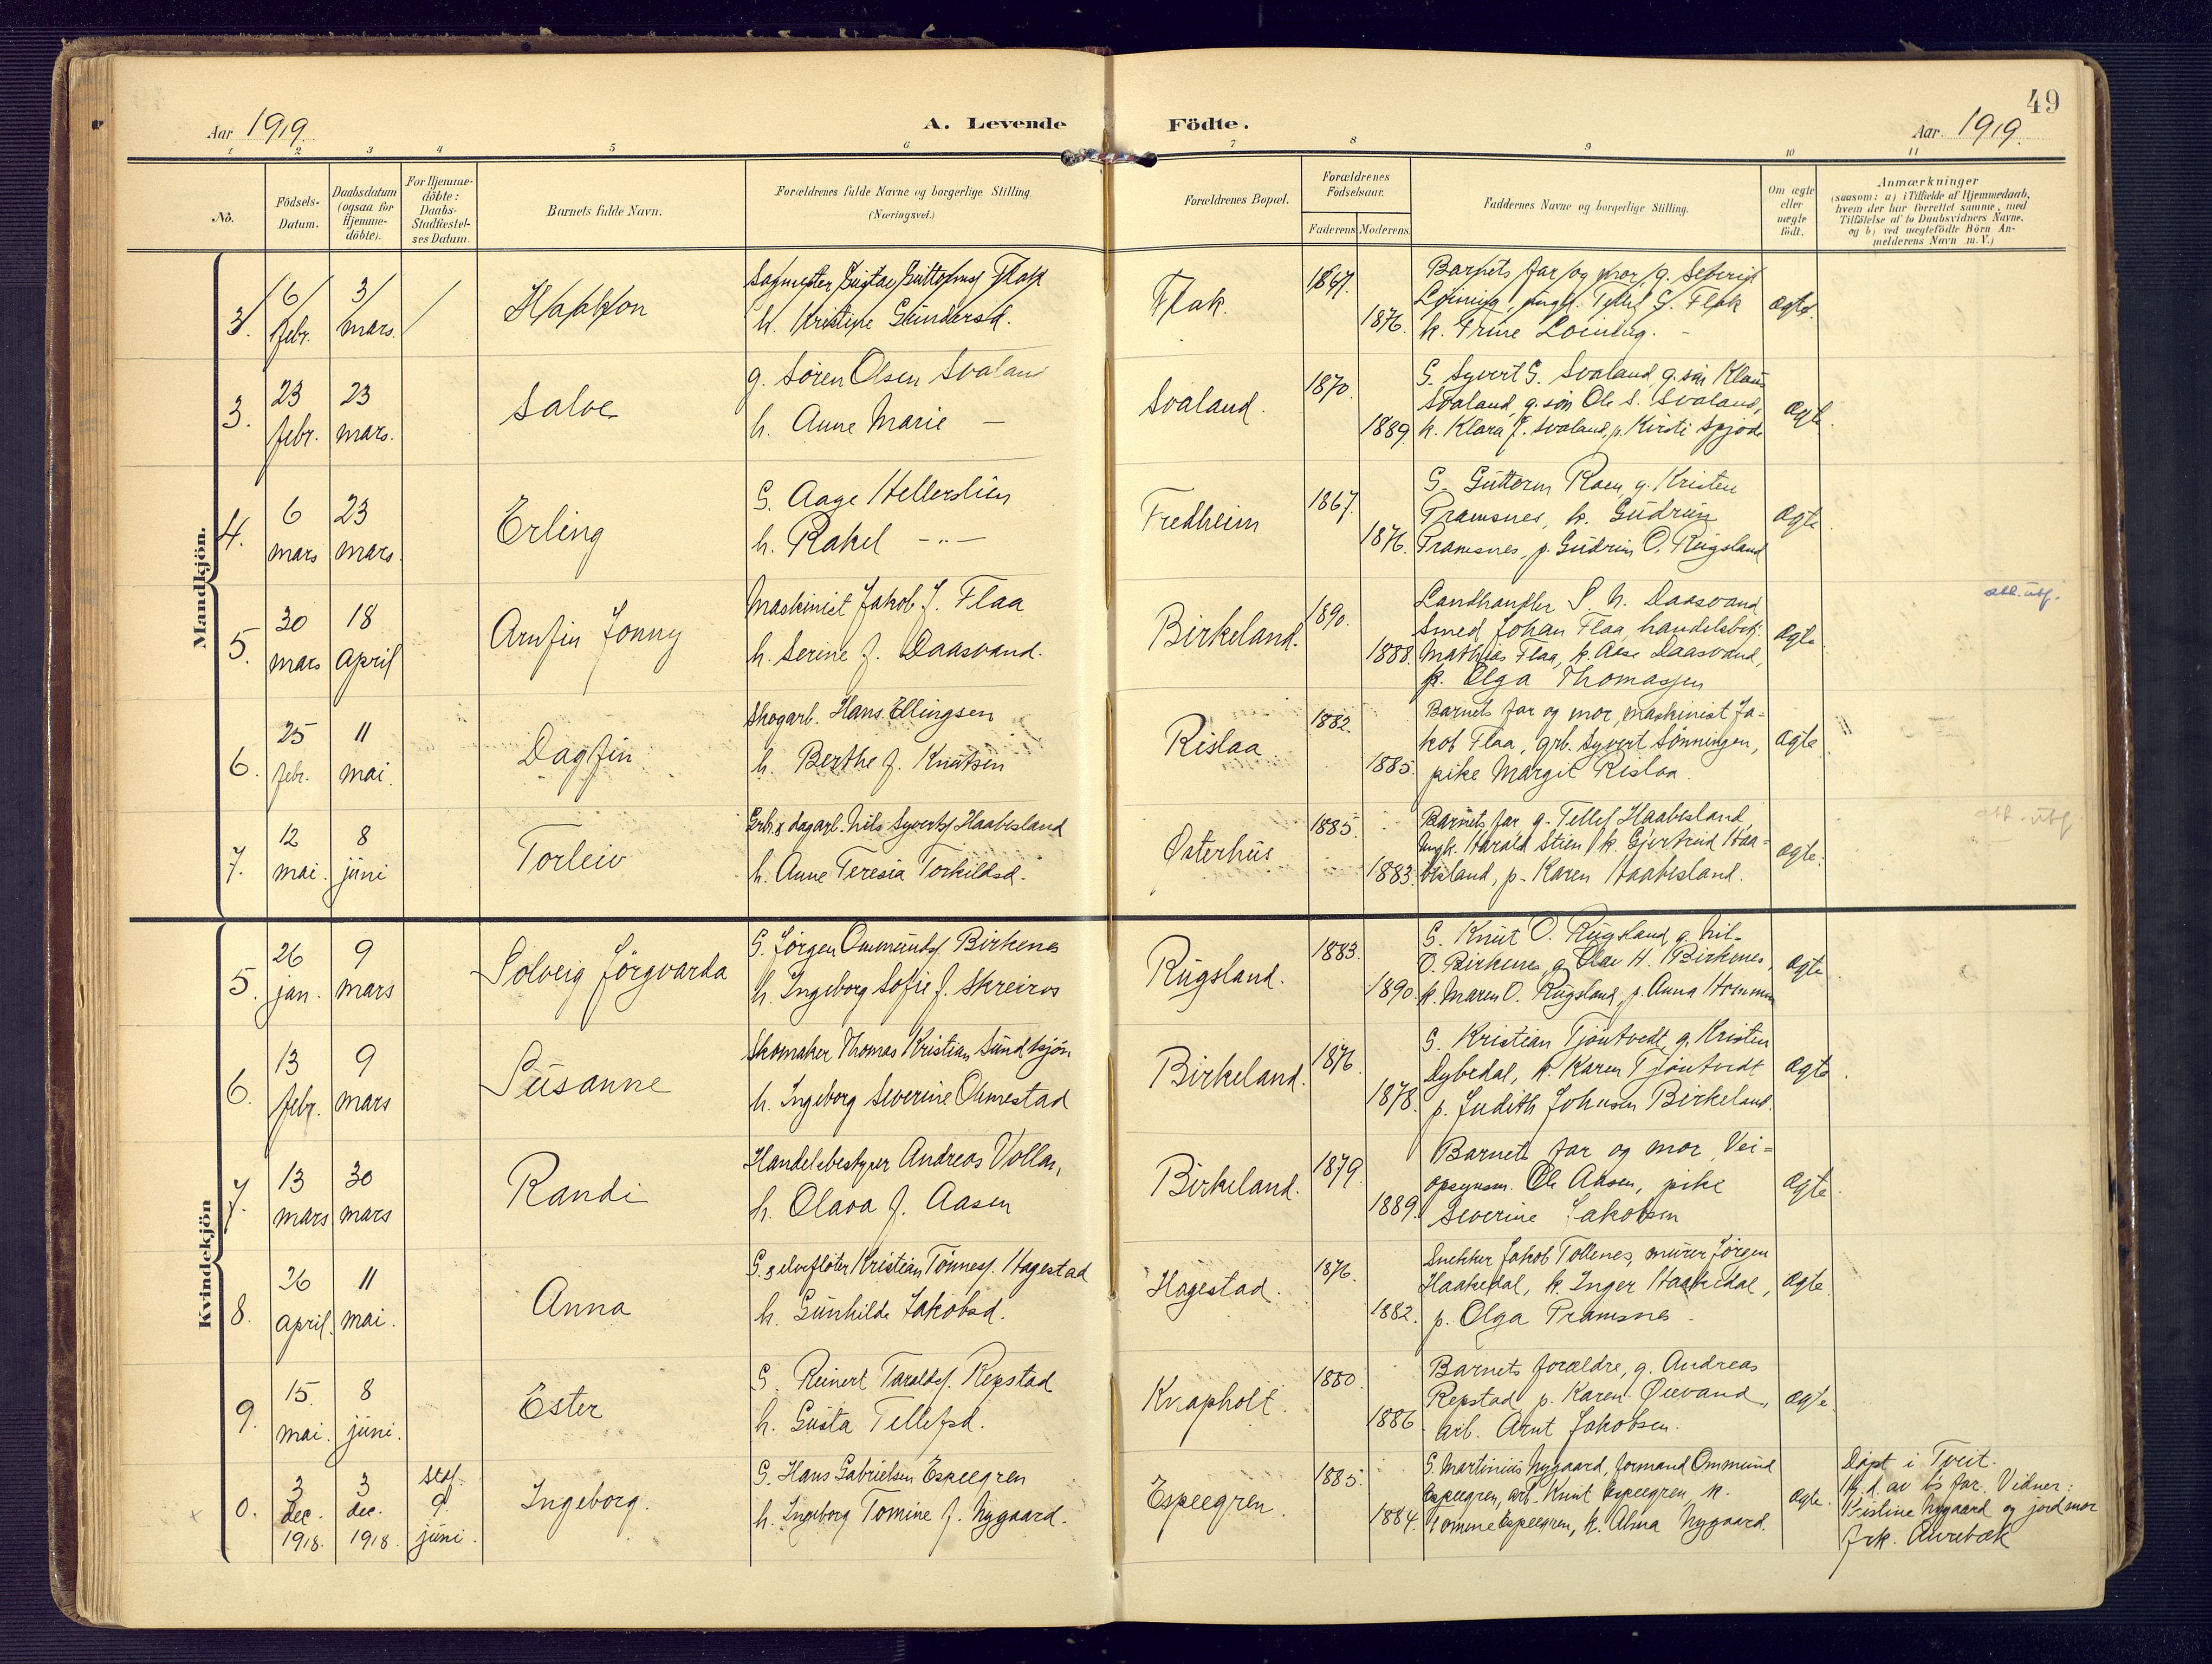 49
Aar 1919.
A. Levende Födte.
Aar. 1919.
1 2 3 4 5 6 7 8 9 10 11
No.
Födsels-Datum.
Daabsdatum (ogsaa for Hjemme-döbte).
For Hjemme-döbte: Daabs-Stadfæstel-ses Datum.
Barnets fulde Navn.
Forældrenes fulde Navne og borgerlige Stilling. (Næringsvei.)
Forældrenes Bopæl.
Forældrenes Födselsaar.
Faderens. Moderens.
Faddernes Navne og borgerlige Stilling.
Om ægte eller uægte födt.
Anmærkninger
(saasom: a) i Tilfælde af Hjemmedaab, hvem der har forrettet samme, med Tilföielse af to Daabsvidners Navne, og b) ved uægtefödte Börn An-melderens Navn m. V.)
Mandkjön.
3. 6 febr. 3 mars.
Haakon
Gustav Flak
h. Kristine Gundersd.
Flak.
1867.
1876.
Barnets far og mor, g.
Flak
k. Trine
ægte.
3. 23 febr. 23 mars.
Salve
g. Sören Olsen Svaland
h. Anne Marie —
Svaland.
1870.
1889.
G. Syvert G. Svaland, g. sön Klaus
Svaland, g. sön Ole S. Svaland,
k. Klara J. Svaland, p. Kirsti
ægte.
4. 6 mars 23 mars.
Erling
G. Aage Hellerslien
h. Rakel —"—
Fredheim
1867.
1876.
G. Guttorm Raen, g. Kristen
Pramsnes, k. Gudrun
Pramsnes, p. Gudrun O. Rugsland
ægte.
5. 30 mars 18 April
Arnfin Jonny
Maskinist Jakob J. Flaa
h. Serine f. Daasvand.
Birkeland.
1890.
1888.
Landhandler S. N. Daasvand
Smed Johan Flaa, handelsbet.
Mathias Flaa, k. Aase Daasvand,
p. Olga Thomassen
ægte.
att. utf.
6. 25 febr. 11 mai.
Dagfin
Skogarb. Hans Ellingsen
h. Berthe f. Knutsen
Rislaa
1882.
1885.
Barnets far og mor, maskinist Ja-
kob Flaa, grb. Syvert Sönningen,
pike Margit Rislaa.
ægte
7. 12 mai. 8 juni
Torleiv
Grbr. & dagarb. Nils Syverts. Haabesland
h. Anne Teresia Torkildsd.
Østerhus
1885.
1883.
Barnets far g. Tellef Haabesland,
ungk. Harald Stien, k. Gjertrud Haa-
besland, p. Karen Haabesland.
ægte.
att. utf.
Kvindekjön
5. 26 jan. 9 mars
Solveig Jörgvarda
G. Jörgen Ommunds. Birkenes
h. Ingeborg Sofie f. Skreiros
Rugsland.
1883.
1890.
G. Knut O. Rugsland, g. Nils
O. Birkenes, g. Olav H. Birkenes,
k. Maren O. Rugsland, p. Anna
ægte.
6. 13 febr. 9 mars
Susanne
Skomaker Thomas Kristian
h. Ingeborg Severine Ommestad
Birkeland.
1876.
1878.
G. Kristian Tjöntvedt, g. Kristen
Dybedal, k. Karen Tjöntvedt
p. Judith Johnsen Birkeland.
ægte.
7. 13 mars 30 mars
Randi
Handelsbestyrer Andreas Vollan,
h. Olava f. Aasen
Birkeland.
1879.
1889.
Barnets far og mor, Vei-
opsynsm. Ole Aasen, pike
Severine Jakobsen
ægte.
8. 26 April. 11 mai.
Anna
G. & elvefløter Kristian Tönnes. Hagestad
h. Gunhilde Jakobsd.
Hagestad.
1876.
1882.
Snekker Jakob Tollenes, murer Jörgen
Haakedal, k. Inger Haakedal,
p. Olga Pramsnes.
ægte.
9. 15. mai. 8 juni.
Ester
G. Reinert Taralds. Repstad
h. Gusta Tellefsd.
Knapholt.
1880.
1886
Barnets forældre, g. Andreas
Repstad, p. Karen
arb. Arnt Jakobsen.
ægte.
0. 3 dec. 1918. 3 dec. 1918 9. juni.
Ingeborg.
G. Hans Gabrielsen Espegren
h. Ingeborg Tomine f. Nygaard.
Espegren.
1885.
1884.
G. Martinius Nygaard, formand Ommund
Espegren, arb. Knut Espegren, k.
Tomine Espegren, k. Alma Nygaard.
ægte.
Döpt i Tveit.
Hj. d. av b's far. Vidner:
Kristine Nygaard og jordmor
frk. Aurebæk